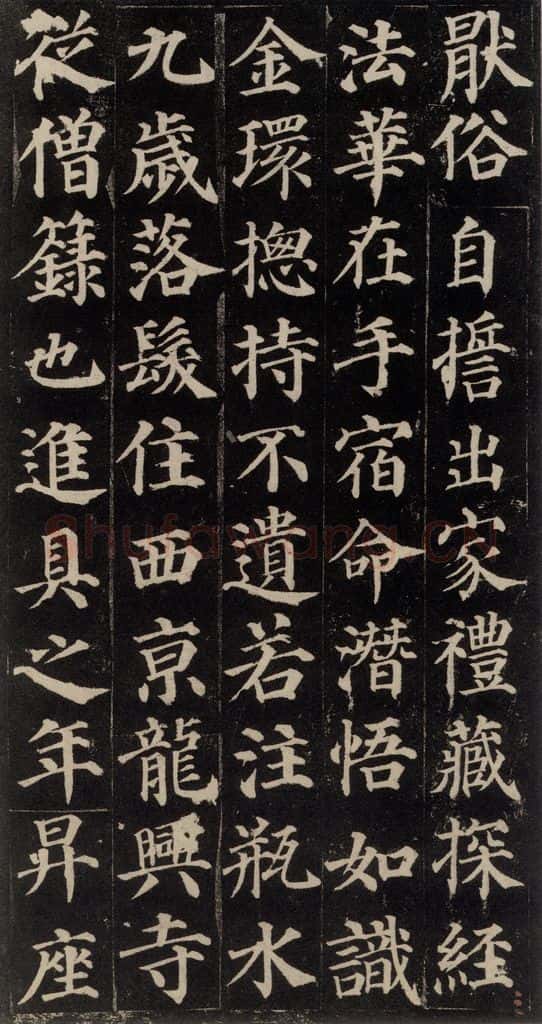 猒俗自捳出家禮藏探経
法華在手宿命潛悟如識
金環捴持不遺若注瓶水
九歲落髮住西京龍興寺
從僧籙也進具之年昇座
Shufawang.CN